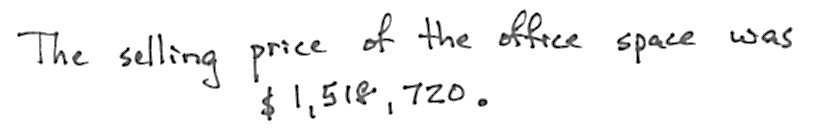 The selling price of the office space was
$1,518,720.